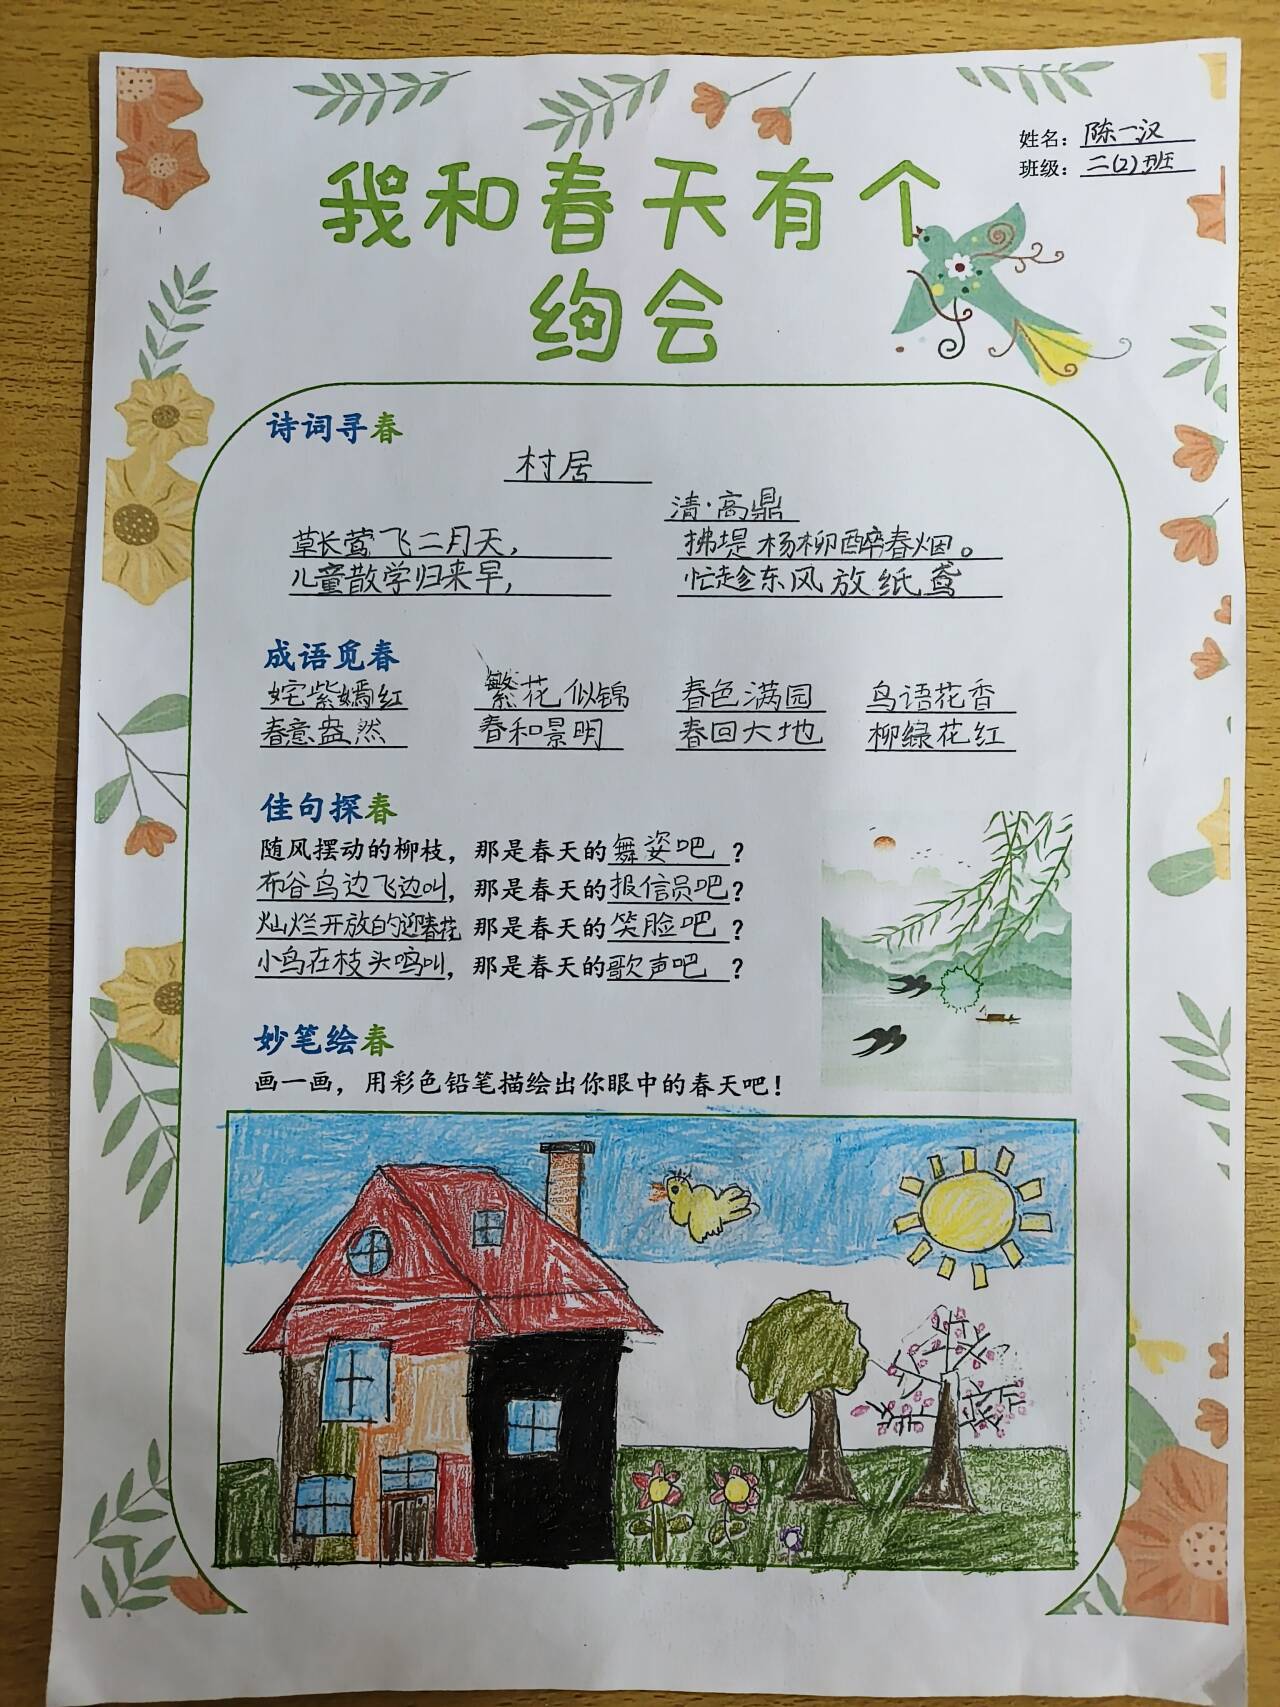 姓名：陈一汉
班级：二(2)班
我和春天有个
约会
诗词寻春
村居
清·高鼎
草长莺飞二月天， 拂堤杨柳醉春烟。
儿童散学归来早， 忙趁东风放纸鸢
成语觅春
姹紫嫣红 繁花似锦 春色满园 鸟语花香
春意盎然 春和景明 春回大地 柳绿花红
佳句探春
随风摆动的柳枝，那是春天的舞姿吧？
布谷鸟边飞边叫，那是春天的报信员吧？
灿烂开放的迎春花 那是春天的笑脸吧？
小鸟在枝头鸣叫，那是春天的歌声吧？
妙笔绘春
画一画，用彩色铅笔描绘出你眼中的春天吧！